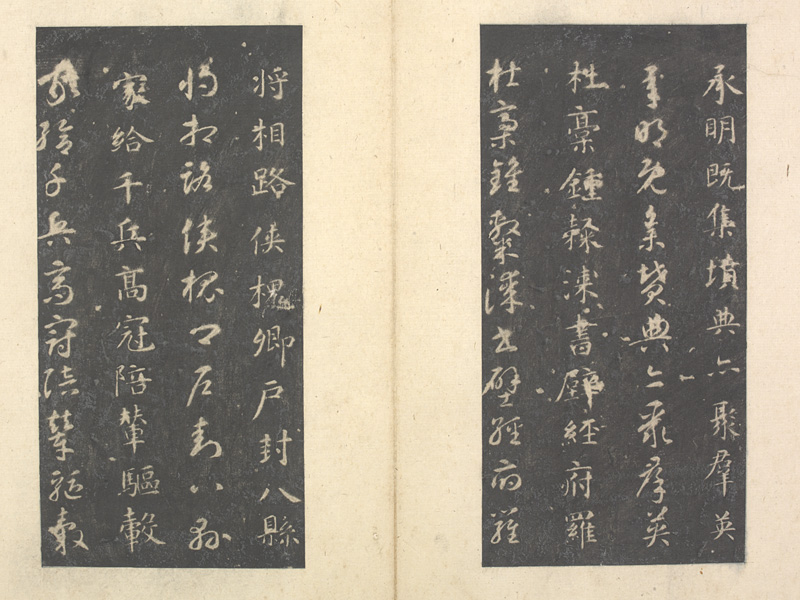 承明既集墳典亦聚羣英
承明既集墳典亦聚羣英
杜稾鍾隸漆書壁経府羅
杜稾鍾隸漆書壁経府羅
将相路俠槐卿戸封八縣
将相路俠槐卿戸封八縣
家給千兵髙冠陪輦驅轂
家給千兵髙冠陪輦驅轂